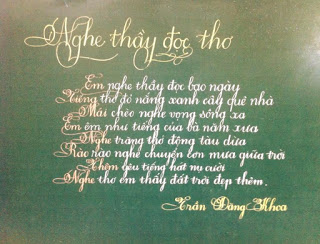 Nghe thầy đọc thơ
Em nghe thầy đọc bao ngày
Tiếng thơ đỏ nắng xanh cây quê nhà
Mái chèo nghe vọng sông xa
Êm êm như tiếng của bà năm xưa
Nghe trăng thở động tàu dừa
Rào rào nghe chuyển cơn mưa giữa trời
Thêm yêu tiếng hát nụ cười
Nghe thơ em thấy đất trời đẹp thêm.
Trần Đăng Khoa